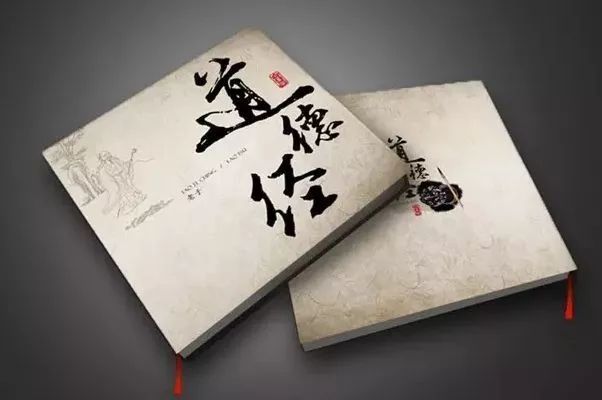 道德经
TAO TE CHING / LAO TSU
老子
道德经